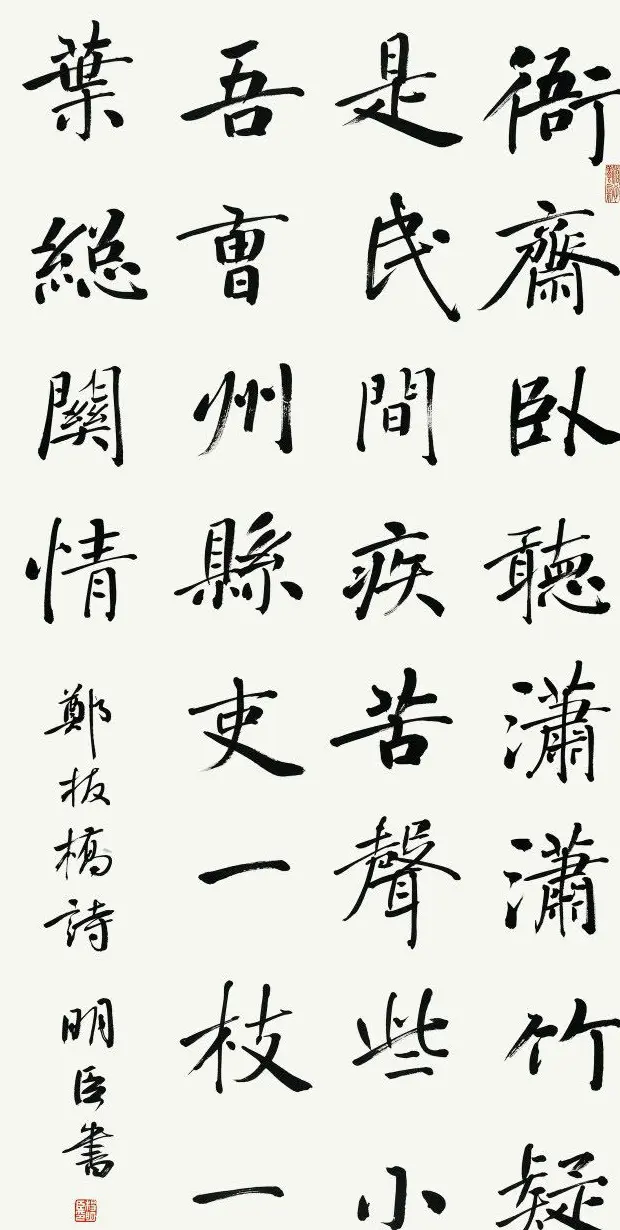 衙齋臥聽瀟瀟竹疑
是民間疾苦聲些小
吾曹州縣吏一枝一
葉総關情
鄭板橋詩 明臣書